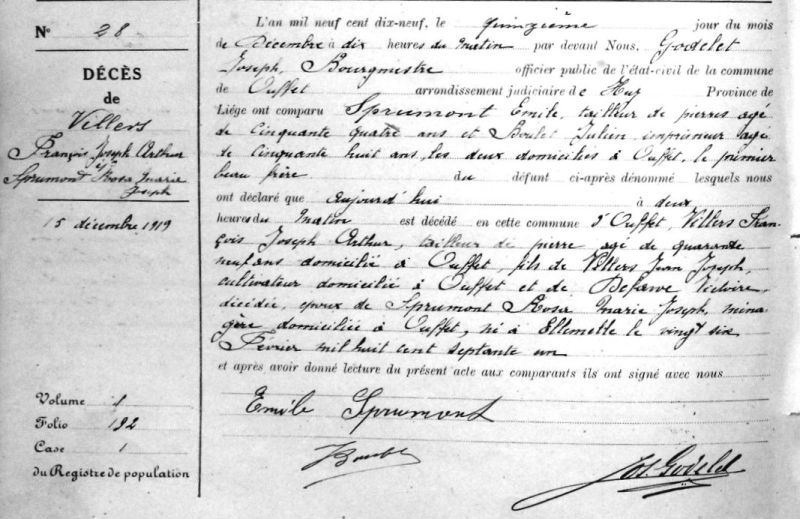 N° 28
DÉCÈS
de
Villers
François Joseph Arthur
&
Sprumont Rosa Marie
Joseph
15 décembre 1919
Volume 1
Folio 192
Case 1
du Registre de population
L'an mil neuf cent dix-neuf, le quinzième jour du mois
de Décembre à dix heures du matin par devant Nous, Godelet
Joseph, Bourgmestre officier public de l'état-civil de la commune
de Ouffet arrondissement judiciaire de Huy Province de
Liége ont comparu Sprumont Emile, tailleur de pierres agé
de cinquante quatre ans et Boulet Julien imprimeur agé
de cinquante huit ans, les deux domiciliés à Ouffet, le premier
beau frère du défunt ci-après dénommé lesquels nous
ont déclaré que aujourd'hui à deux
heures du matin est décédé en cette commune d'Ouffet, Villers Fran-
çois Joseph Arthur, tailleur de pierre agé de quarante
neuf ans domicilié à Ouffet, fils de Villers Jean Joseph,
cultivateur domicilié à Ouffet et de Defawe Victoire,
décédée, epoux de Sprumont Rosa Marie Joseph, ména-
gère domiciliée à Ouffet, né à Ellemelle le vingt six
Février mil huit cent septante un
et après avoir donné lecture du présent acte aux comparants ils ont signé avec nous
Emile Sprumont
Jos. Godelet